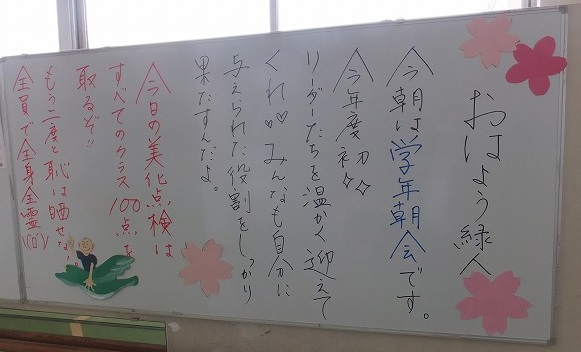 おはよう緑人
今朝は学年朝会です。
今年度初✧✧
リーダーたちを温かく迎えて
くれ♡♡みんなも自分に
与えられた役割をしっかり
果たすんだよ。
今日の美化点検は
すべてのクラス100点を
取るぞ!!
もう二度と恥は晒せない
全員で全身全霊\(°o°)/